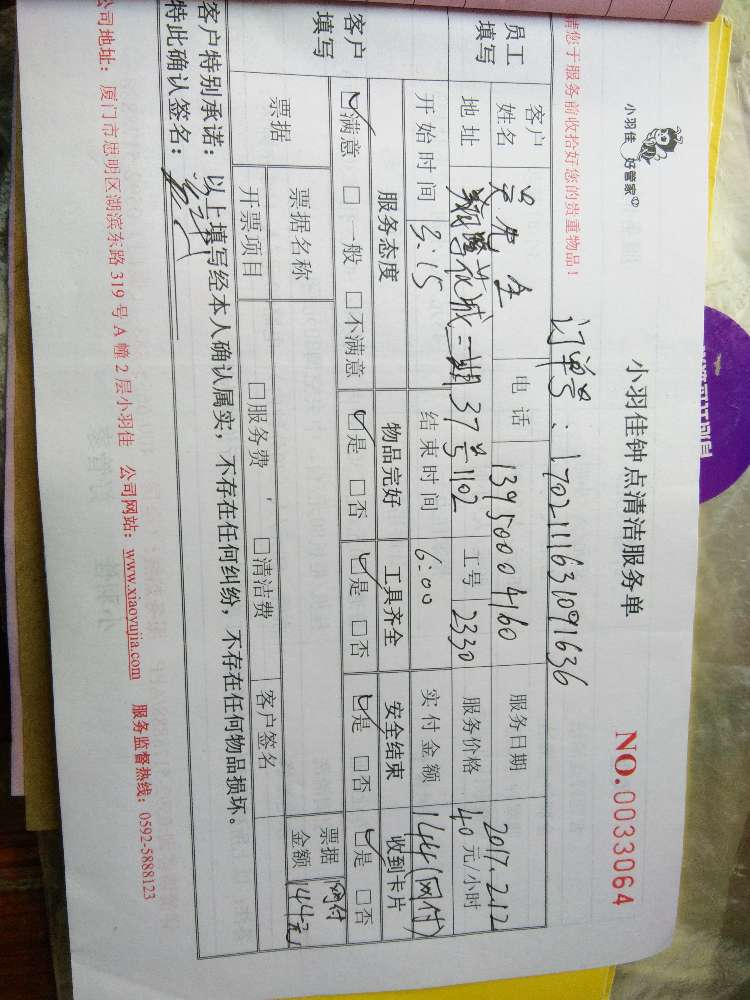 小羽佳 好管家
小羽佳钟点清洁服务单
NO.0033064
请您于服务前收拾好您的贵重物品！
订单号：1702111631091636
员工填写
客户姓名 吴先生 电话 13950004160 服务日期 2017.2.12
地址 花城二期37号1102 工号 2330 服务价格 40元/小时
开始时间 3:15 结束时间 6:00 实付金额 144(网付)
客户填写
服务态度 物品完好 工具齐全 安全结束 收到卡片
☑满意 □一般 □不满意 ☑是 □否 ☑是 □否 ☑是 □否 ☑是 □否
票据 票据名称 票据金额 网付 144元
开票项目 □服务费 □清洁费 客户签名
客户特别承诺：以上填写经本人确认属实，不存在任何纠纷，不存在任何物品损坏。
特此确认签名：
公司地址：厦门市思明区湖滨东路319号A幢2层小羽佳 公司网站：www.xiaoyujia.com 服务监督热线：0592-5888123